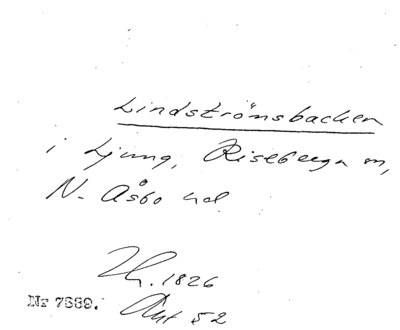 Lindströmsbacken
i Ljung, Riseberga sn,
N. Åsbo hd
Lh. 1826
Akt 52
Nr 7689.